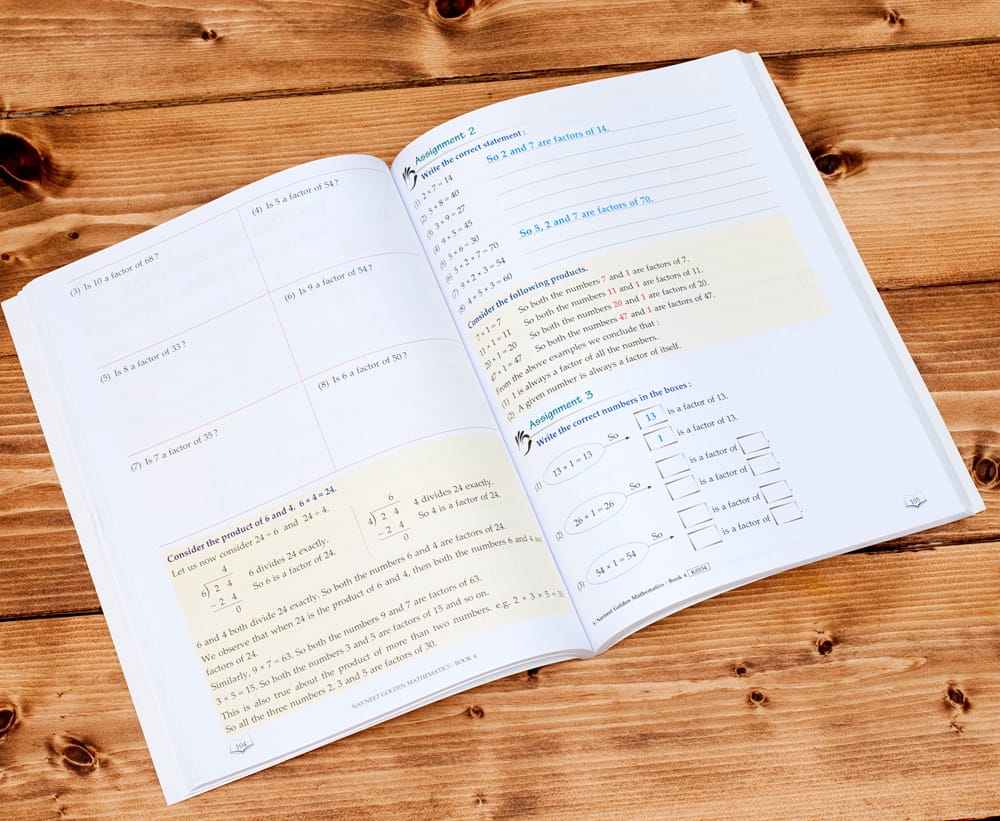 (3) Is 10 a factor of 68?
(4) Is 5 a factor of 54?
(5) Is 8 a factor of 33?
(6) Is 9 a factor of 54?
(7) Is 7 a factor of 35?
(8) Is 6 a factor of 50?
Consider the product of 6 and 4. 6 × 4 = 24.
Let us now consider 24 ÷ 6 and 24 ÷ 4.
4
6) 2 4
− 2 4
0
6 divides 24 exactly.
So 6 is a factor of 24.
6
4) 2 4
− 2 4
0
4 divides 24 exactly.
So 4 is a factor of 24.
6 and 4 both divide 24 exactly. So both the numbers 6 and 4 are factors of 24.
We observe that when 24 is the product of 6 and 4, then both the numbers 6 and 4 are
factors of 24.
Similarly, 9 × 7 = 63. So both the numbers 9 and 7 are factors of 63.
3 × 5 = 15. So both the numbers 3 and 5 are factors of 15 and so on.
This is also true about the product of more than two numbers. e.g. 2 × 3 × 5 =
So all the three numbers 2, 3 and 5 are factors of 30.
104
NAVNEET GOLDEN MATHEMATICS : BOOK 4
Assignment 2
Write the correct statement :
(1) 2 × 7 = 14 So 2 and 7 are factors of 14.
(2) 5 × 8 = 40
(3) 3 × 9 = 27
(4) 9 × 5 = 45
(5) 5 × 6 = 30
(6) 5 × 2 × 7 = 70 So 5, 2 and 7 are factors of 70.
(7) 9 × 2 × 3 = 54
(8) 4 × 5 × 3 = 60
Consider the following products.
7 × 1 = 7 So both the numbers 7 and 1 are factors of 7.
11 × 1 = 11 So both the numbers 11 and 1 are factors of 11.
20 × 1 = 20 So both the numbers 20 and 1 are factors of 20.
47 × 1 = 47 So both the numbers 47 and 1 are factors of 47.
From the above examples we conclude that :
(1) 1 is always a factor of all the numbers.
(2) A given number is always a factor of itself.
Assignment 3
Write the correct numbers in the boxes :
(1) 13 × 1 = 13 So 13 is a factor of 13.
1 is a factor of 13.
(2) 26 × 1 = 26 So is a factor of
is a factor of
(3) 54 × 1 = 54 So is a factor of
is a factor of
Navneet Golden Mathematics : Book 4 K0334
105